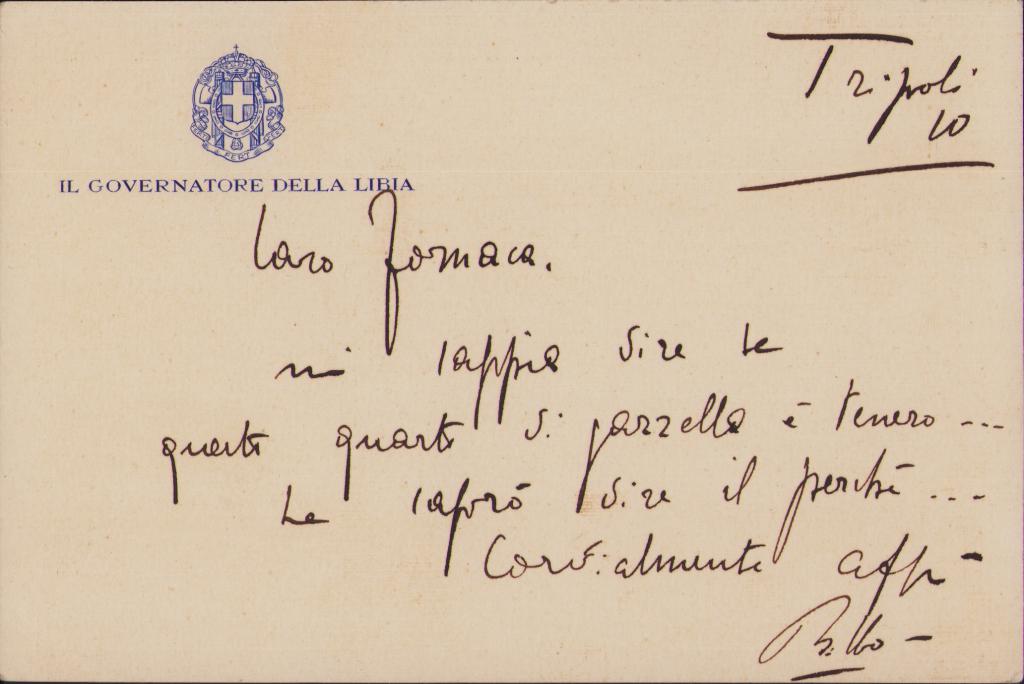 Tripoli
10
FERT
IL GOVERNATORE DELLA LIBIA
Caro Fornaca.
mi sappia dire se
questo quarto di gazzella è tenero ...
Le saprò dire il perché ...
Cordialmente aff
Balbo